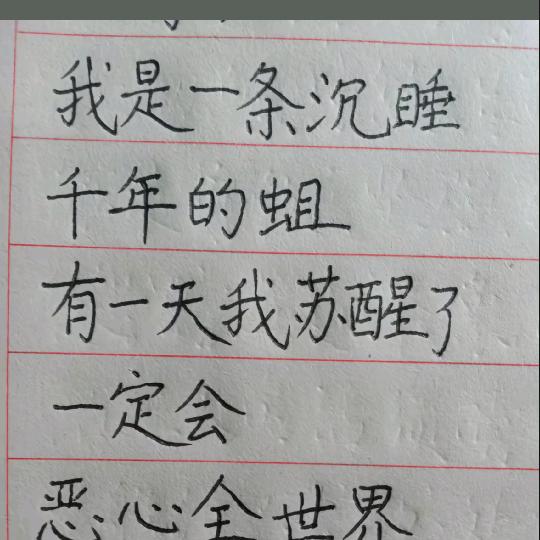 我是一条沉睡
千年的蛆
有一天我苏醒了
一定会
恶心全世界